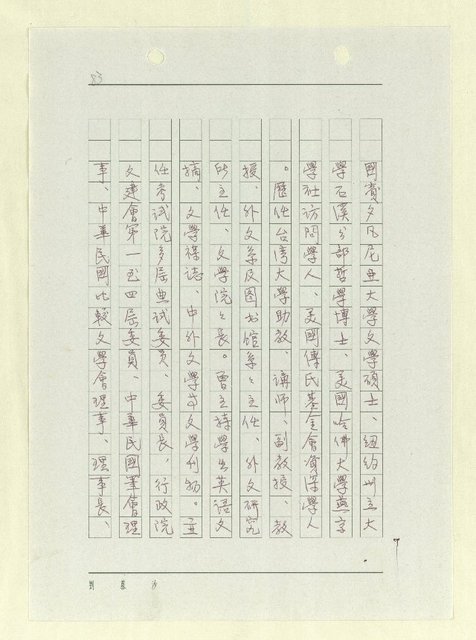 83
國賓夕凡尼亞大學文學碩士、紐約州立大
學石溪分部哲學博士、美國哈佛大學燕京
學社訪問學人、美國傅氏基金會資深學人
。歷任台灣大學助教、講師、副教授、教
授、外文系及图书館系系主任、外文研究
所主任、文學院院長。曾主持學生英語文
摘、文學雜誌、中外文學等文學刊物。並
任考試院多屆典試委員、委員長、行政院
文建會第一至四屆委員、中華民國筆會理
事、中華民國比較文學會理事、理事長、
劉慕沙